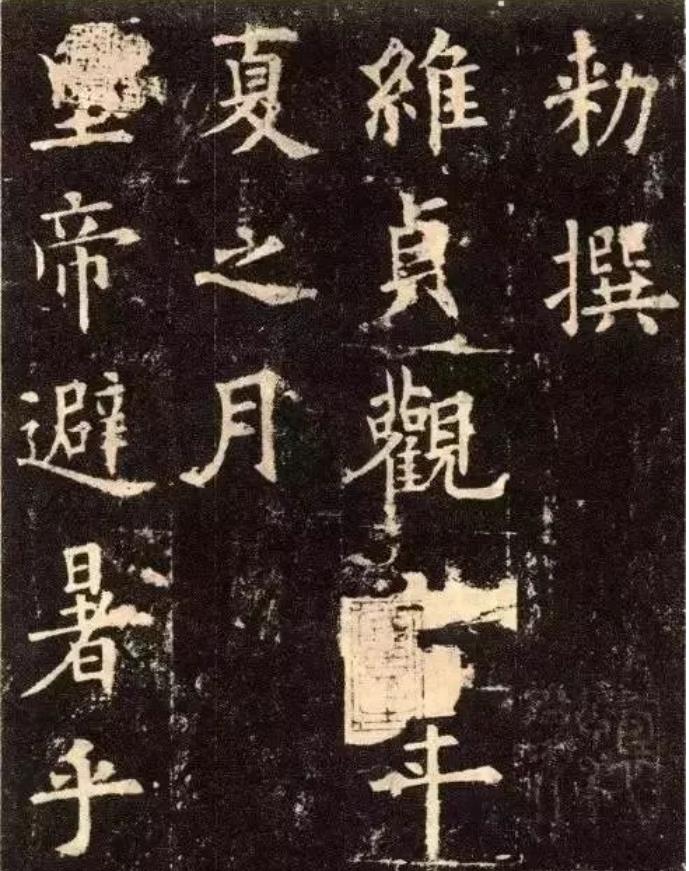 勅撰
維貞觀年
夏之月
皇帝避暑乎